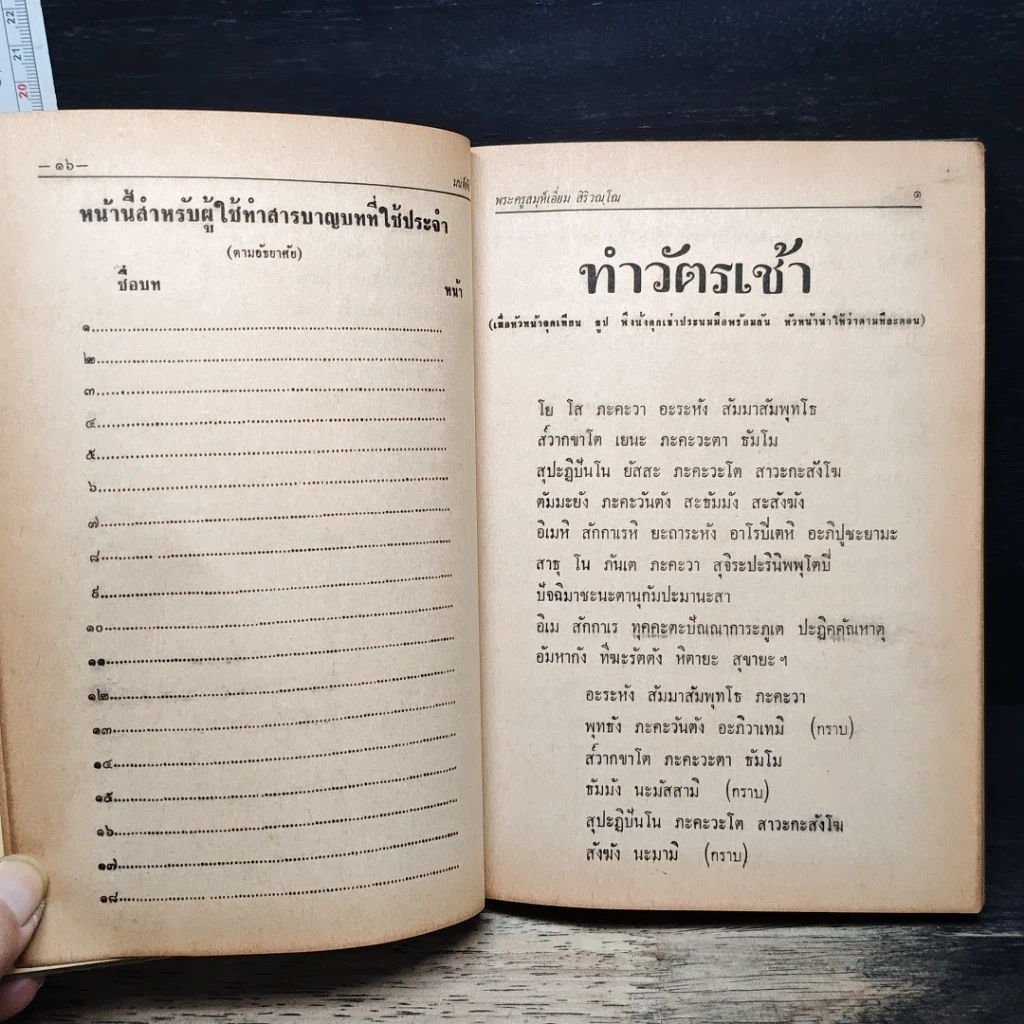 22
21
20
— ๑๖ —
หน้านี้สำหรับผู้ใช้ทำสารบาญบทที่ใช้ประจำ
(ตามอัธยาศัย)
ชื่อบท หน้า
๑
๒
๓
๔
๕
๖
๗
๘
๙
๑๐
๑๑
๑๒
๑๓
๑๔
๑๕
๑๖
๑๗
๑๘
พระครูสมุห์เอี่ยม สิริวณฺโณ ๑
ทำวัตรเช้า
(เมื่อหัวหน้าจุดเทียน ธูป พึงนั่งคุกเข่าประนมมือพร้อมกัน หัวหน้านำให้ว่าตามทีละตอน)
โย โส ภะคะวา อะระหัง สัมมาสัมพุทโธ
ส๎วากขาโต เยนะ ภะคะวะตา ธัมโม
สุปะฏิปันโน ยัสสะ ภะคะวะโต สาวะกะสังโฆ
ตัมมะยัง ภะคะวันตัง สะธัมมัง สะสังฆัง
อิเมหิ สักกาเรหิ ยะถาระหัง อาโรปิเตหิ อะภิปูชะยามะ
สาธุ โน ภันเต ภะคะวา สุจิระปะรินิพพุโตปิ
ปัจฉิมาชะนะตานุกัมปะมานะสา
อิเม สักกาเร ทุคคะตะปัณณาการะภูเต ปะฏิคคัณหาตุ
อัมหากัง ทีฆะรัตตัง หิตายะ สุขายะ ฯ
อะระหัง สัมมาสัมพุทโธ ภะคะวา
พุทธัง ภะคะวันตัง อะภิวาเทมิ (กราบ)
ส๎วากขาโต ภะคะวะตา ธัมโม
ธัมมัง นะมัสสามิ (กราบ)
สุปะฏิปันโน ภะคะวะโต สาวะกะสังโฆ
สังฆัง นะมามิ (กราบ)